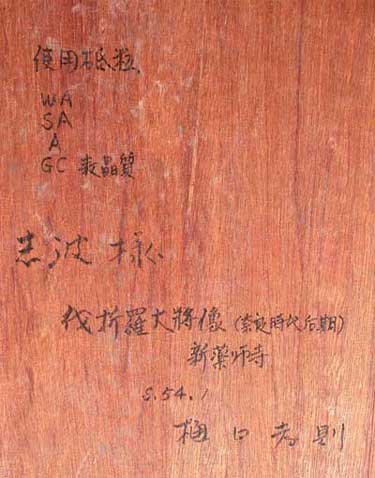 使用砥粒
WA
SA
A
GC 炭晶質
志波 様
伐折羅大将像(奈良時代后期)
新薬師寺
S.54.1
樋口 孝則